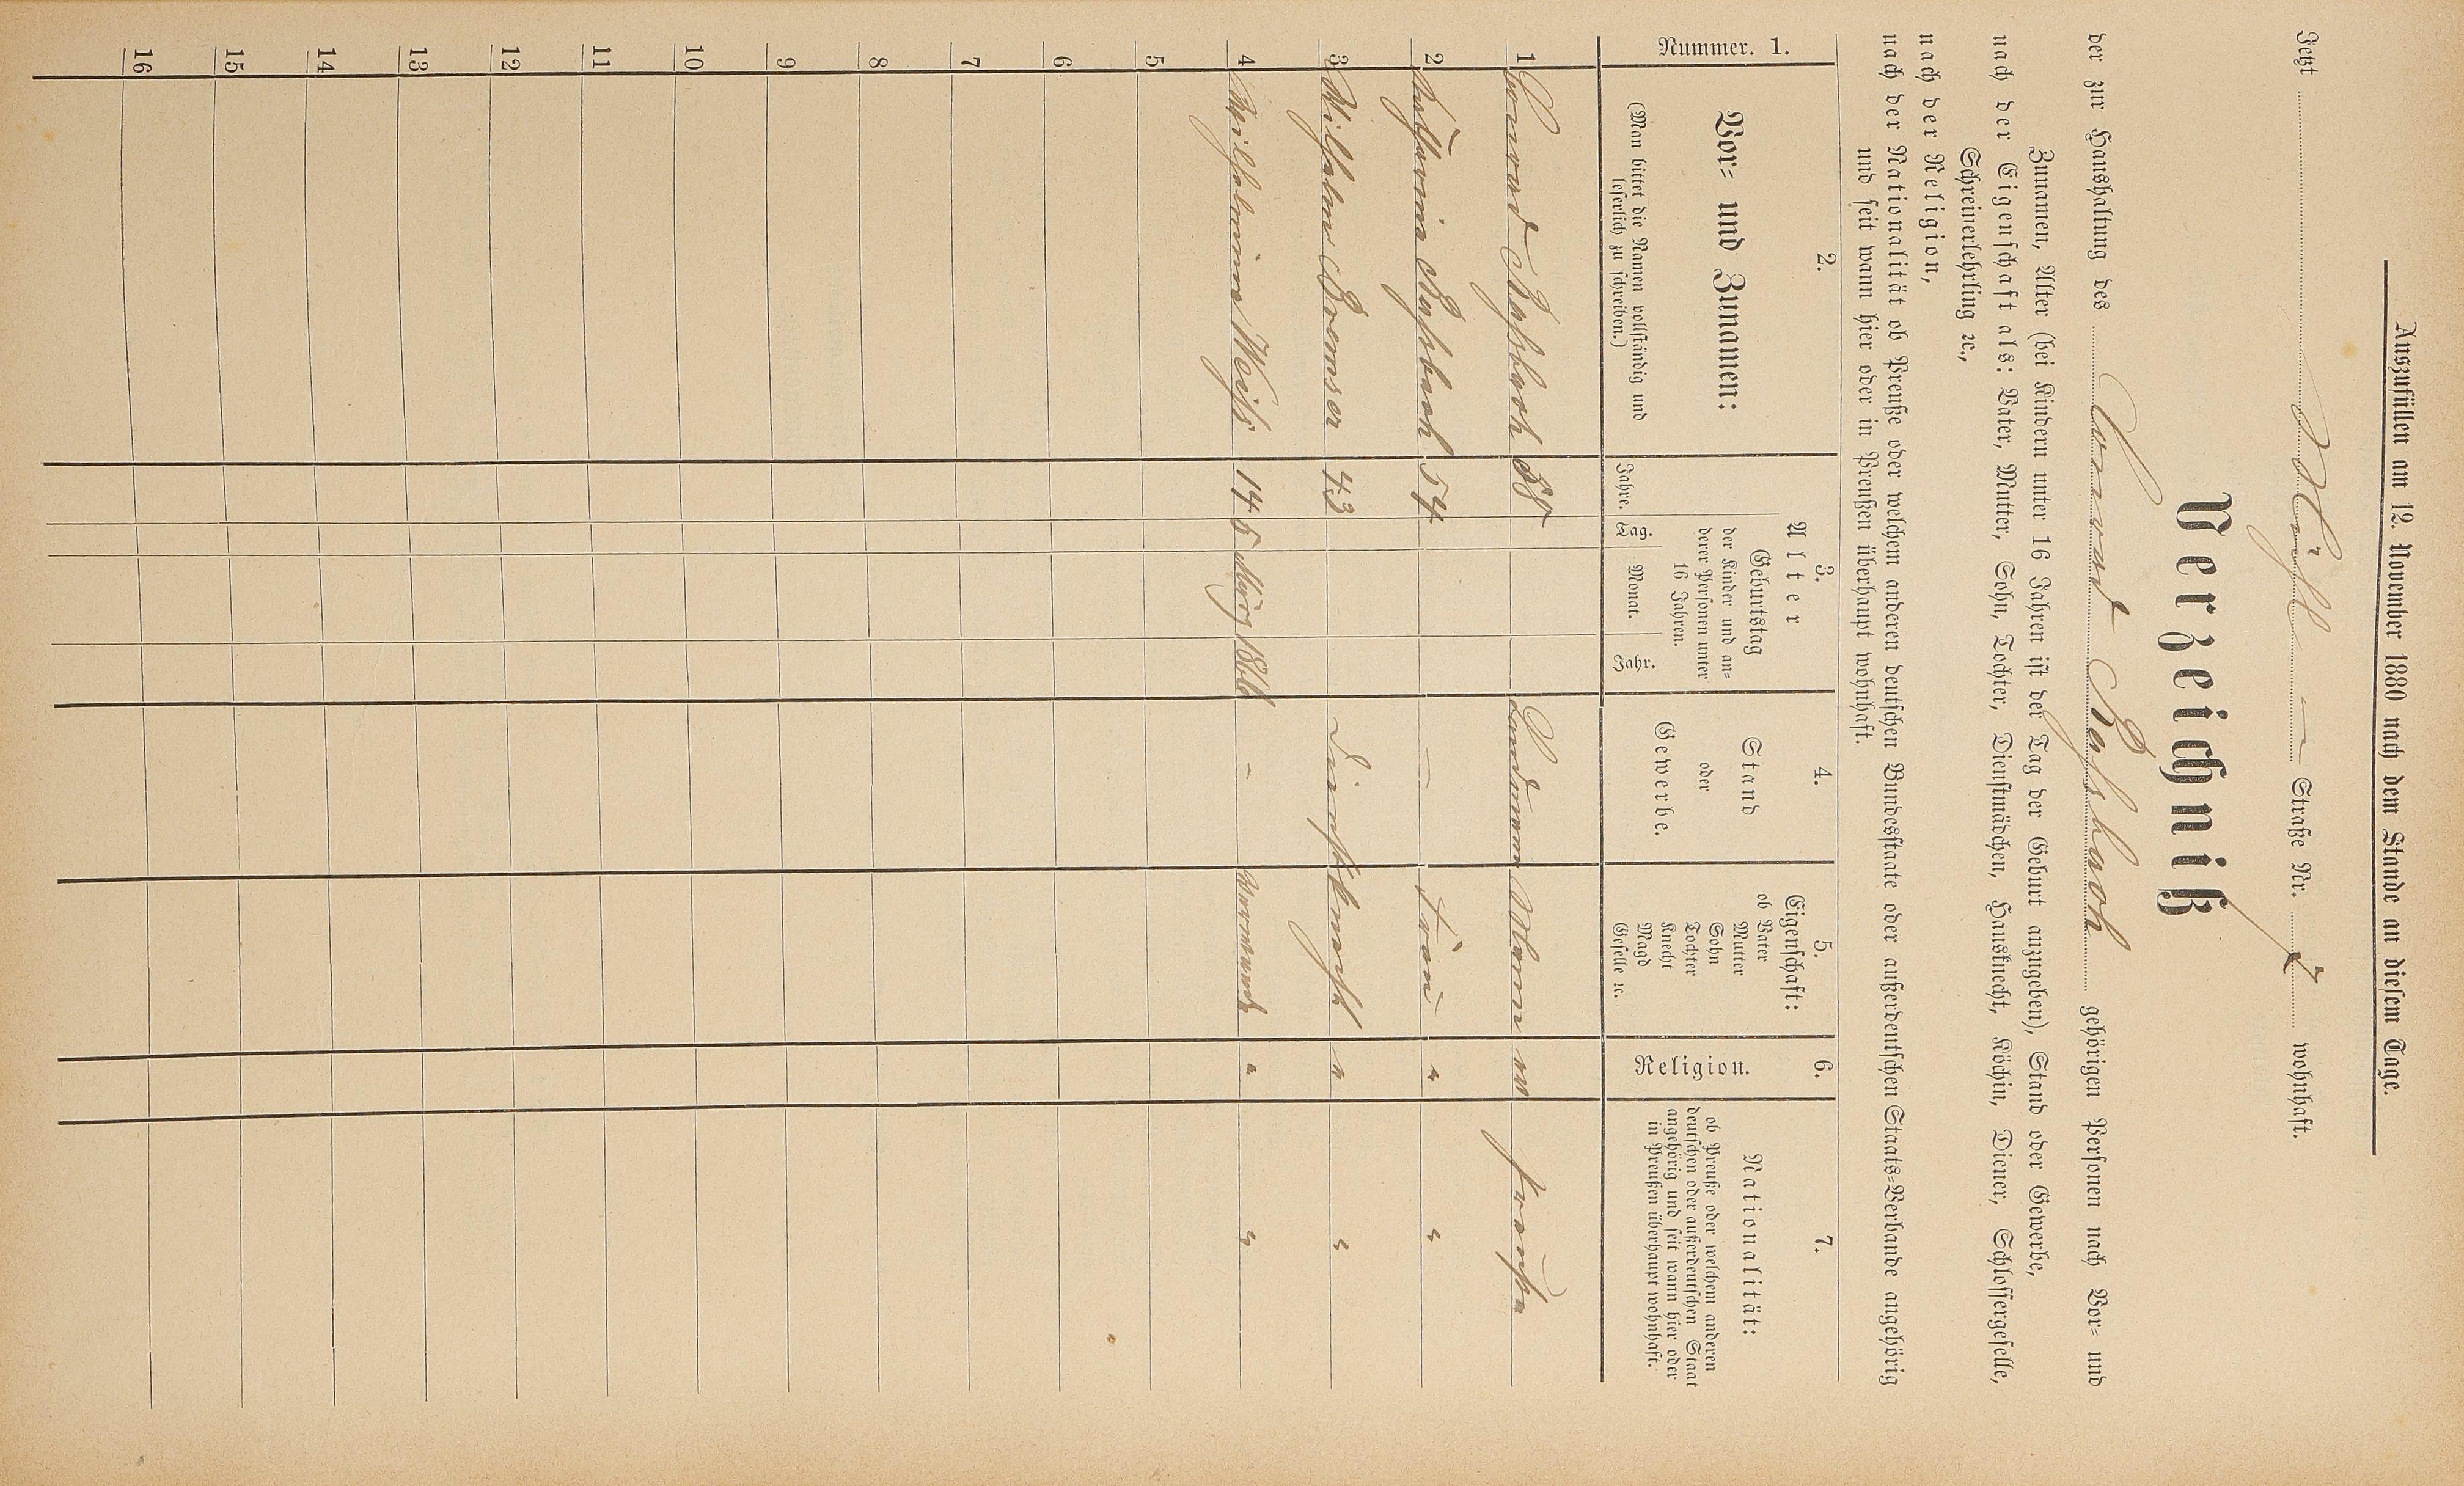 Auszufüllen am 12. November 1880 nach dem Stande an diesem Tage.
Jetzt Straße Nr. wohnhaft.
Verzeichniß
der zur Haushaltung des Conrad gehörigen Personen nach Vor= und
Zunamen, Alter (bei Kindern unter 16 Jahren ist der Tag der Geburt anzugeben), Stand oder Gewerbe,
nach der Eigenschaft als: Vater, Mutter, Sohn, Tochter, Dienstmädchen, Hausknecht, Köchin, Diener, Schlossergeselle,
Schreinerlehrling ꝛc.,
nach der Religion,
nach der Nationalität ob Preuße oder welchem anderen deutschen Bundesstaate oder außerdeutschen Staats=Verbande angehörig
und seit wann hier oder in Preußen überhaupt wohnhaft.
Nummer. 1.
2.
Vor= und Zunamen:
(Man bittet die Namen vollständig und
leserlich zu schreiben.)
3.
Alter
Jahre.
Geburtstag
der Kinder und an=
derer Personen unter
16 Jahren.
Tag. Monat. Jahr.
4.
Stand
oder
Gewerbe.
5.
Eigenschaft:
ob Vater
Mutter
Sohn
Tochter
Knecht
Magd
Geselle ꝛc.
6.
Religion.
7.
Nationalität:
ob Preuße oder welchem anderen
deutschen oder außerdeutschen Staat
angehörig und seit wann hier oder
in Preußen überhaupt wohnhaft.
1 Conrad Landmann Mann ev
2 54 – Frau " "
3 Wilhelm Bremser 43 Dienstknecht " "
4 Wilhelmine Weiß 14 5 März 1866 – "  "
5
6
7
8
9
10
11
12
13
14
15
16